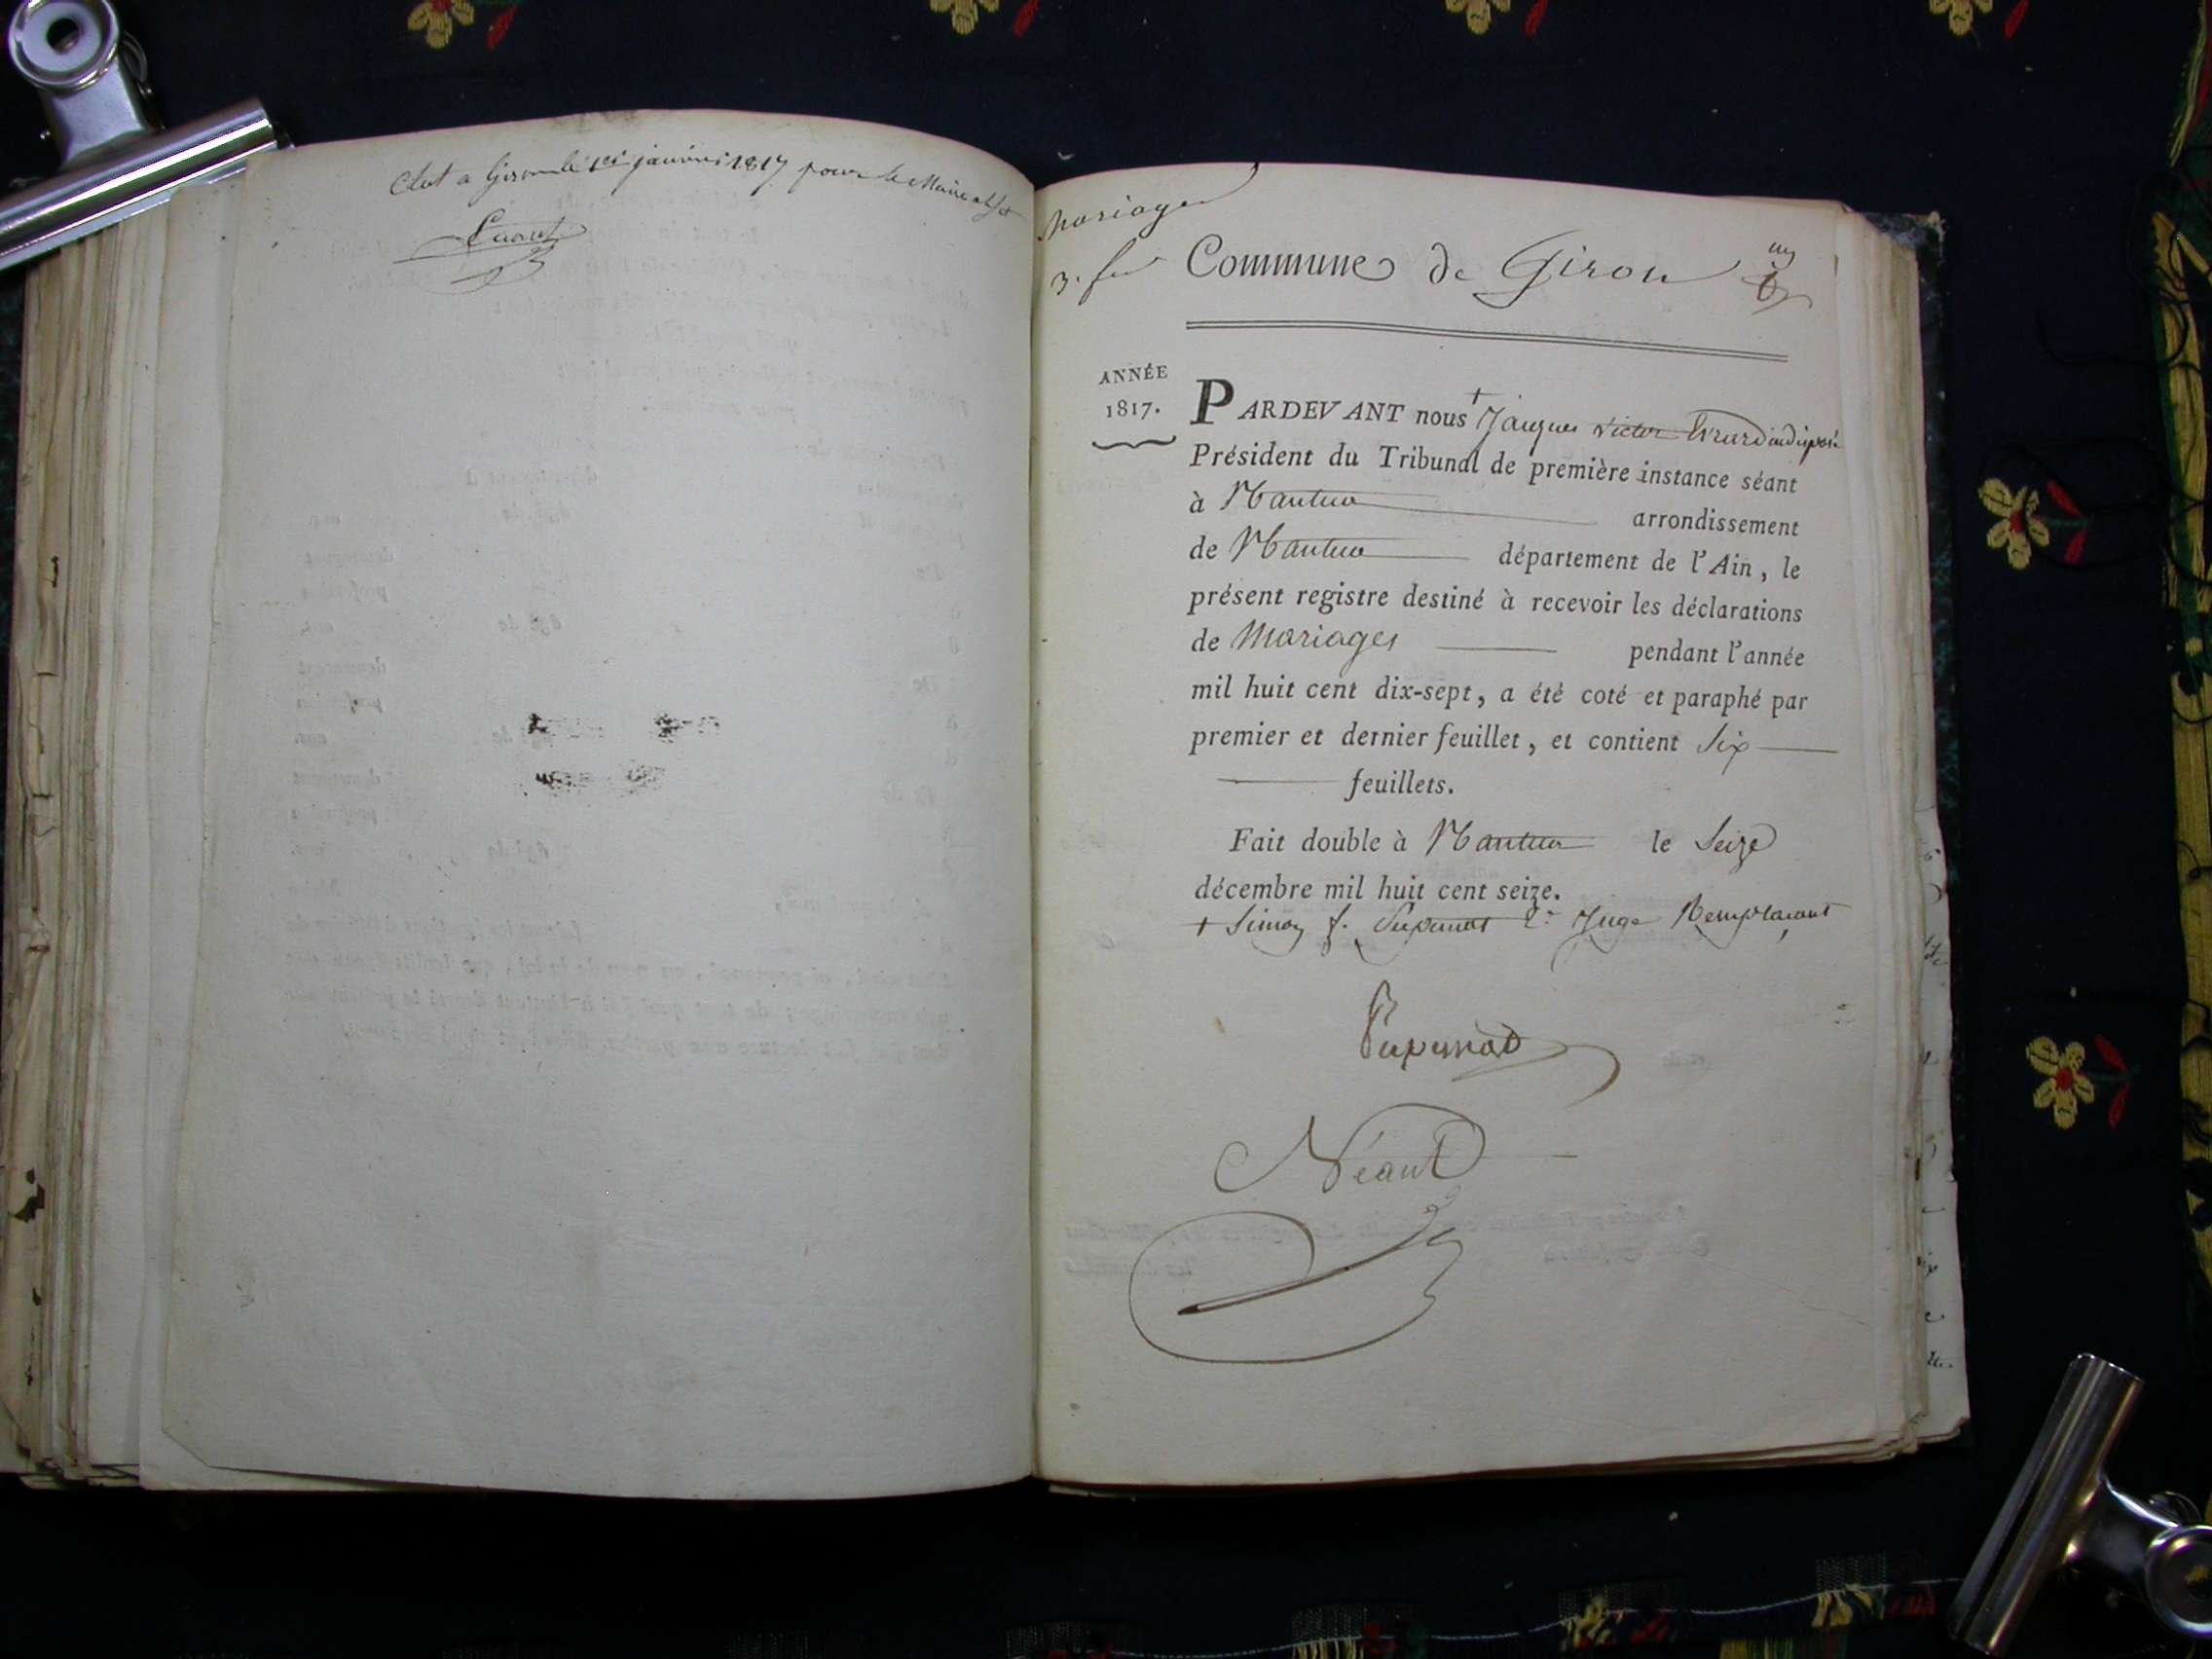 Clot a Giron le 1er janvier 1817 pour le Maire abst
Mariages
3. fr
Commune de Giron
un
ANNÉE
1817.
PARDEVANT nous + Jacques Victor Girard indisposé
Président du Tribunal de première instance séant
à Nantua arrondissement
de Nantua département de l'Ain, le
présent registre destiné à recevoir les déclarations
de Mariages pendant l'année
mil huit cent dix-sept, a été coté et paraphé par
premier et dernier feuillet, et contient Six
feuillets.
Fait double à Nantua le Seize
décembre mil huit cent seize.
+ Simon f. Pupunat 2e Juge Remplacant
Pupunat
Néant